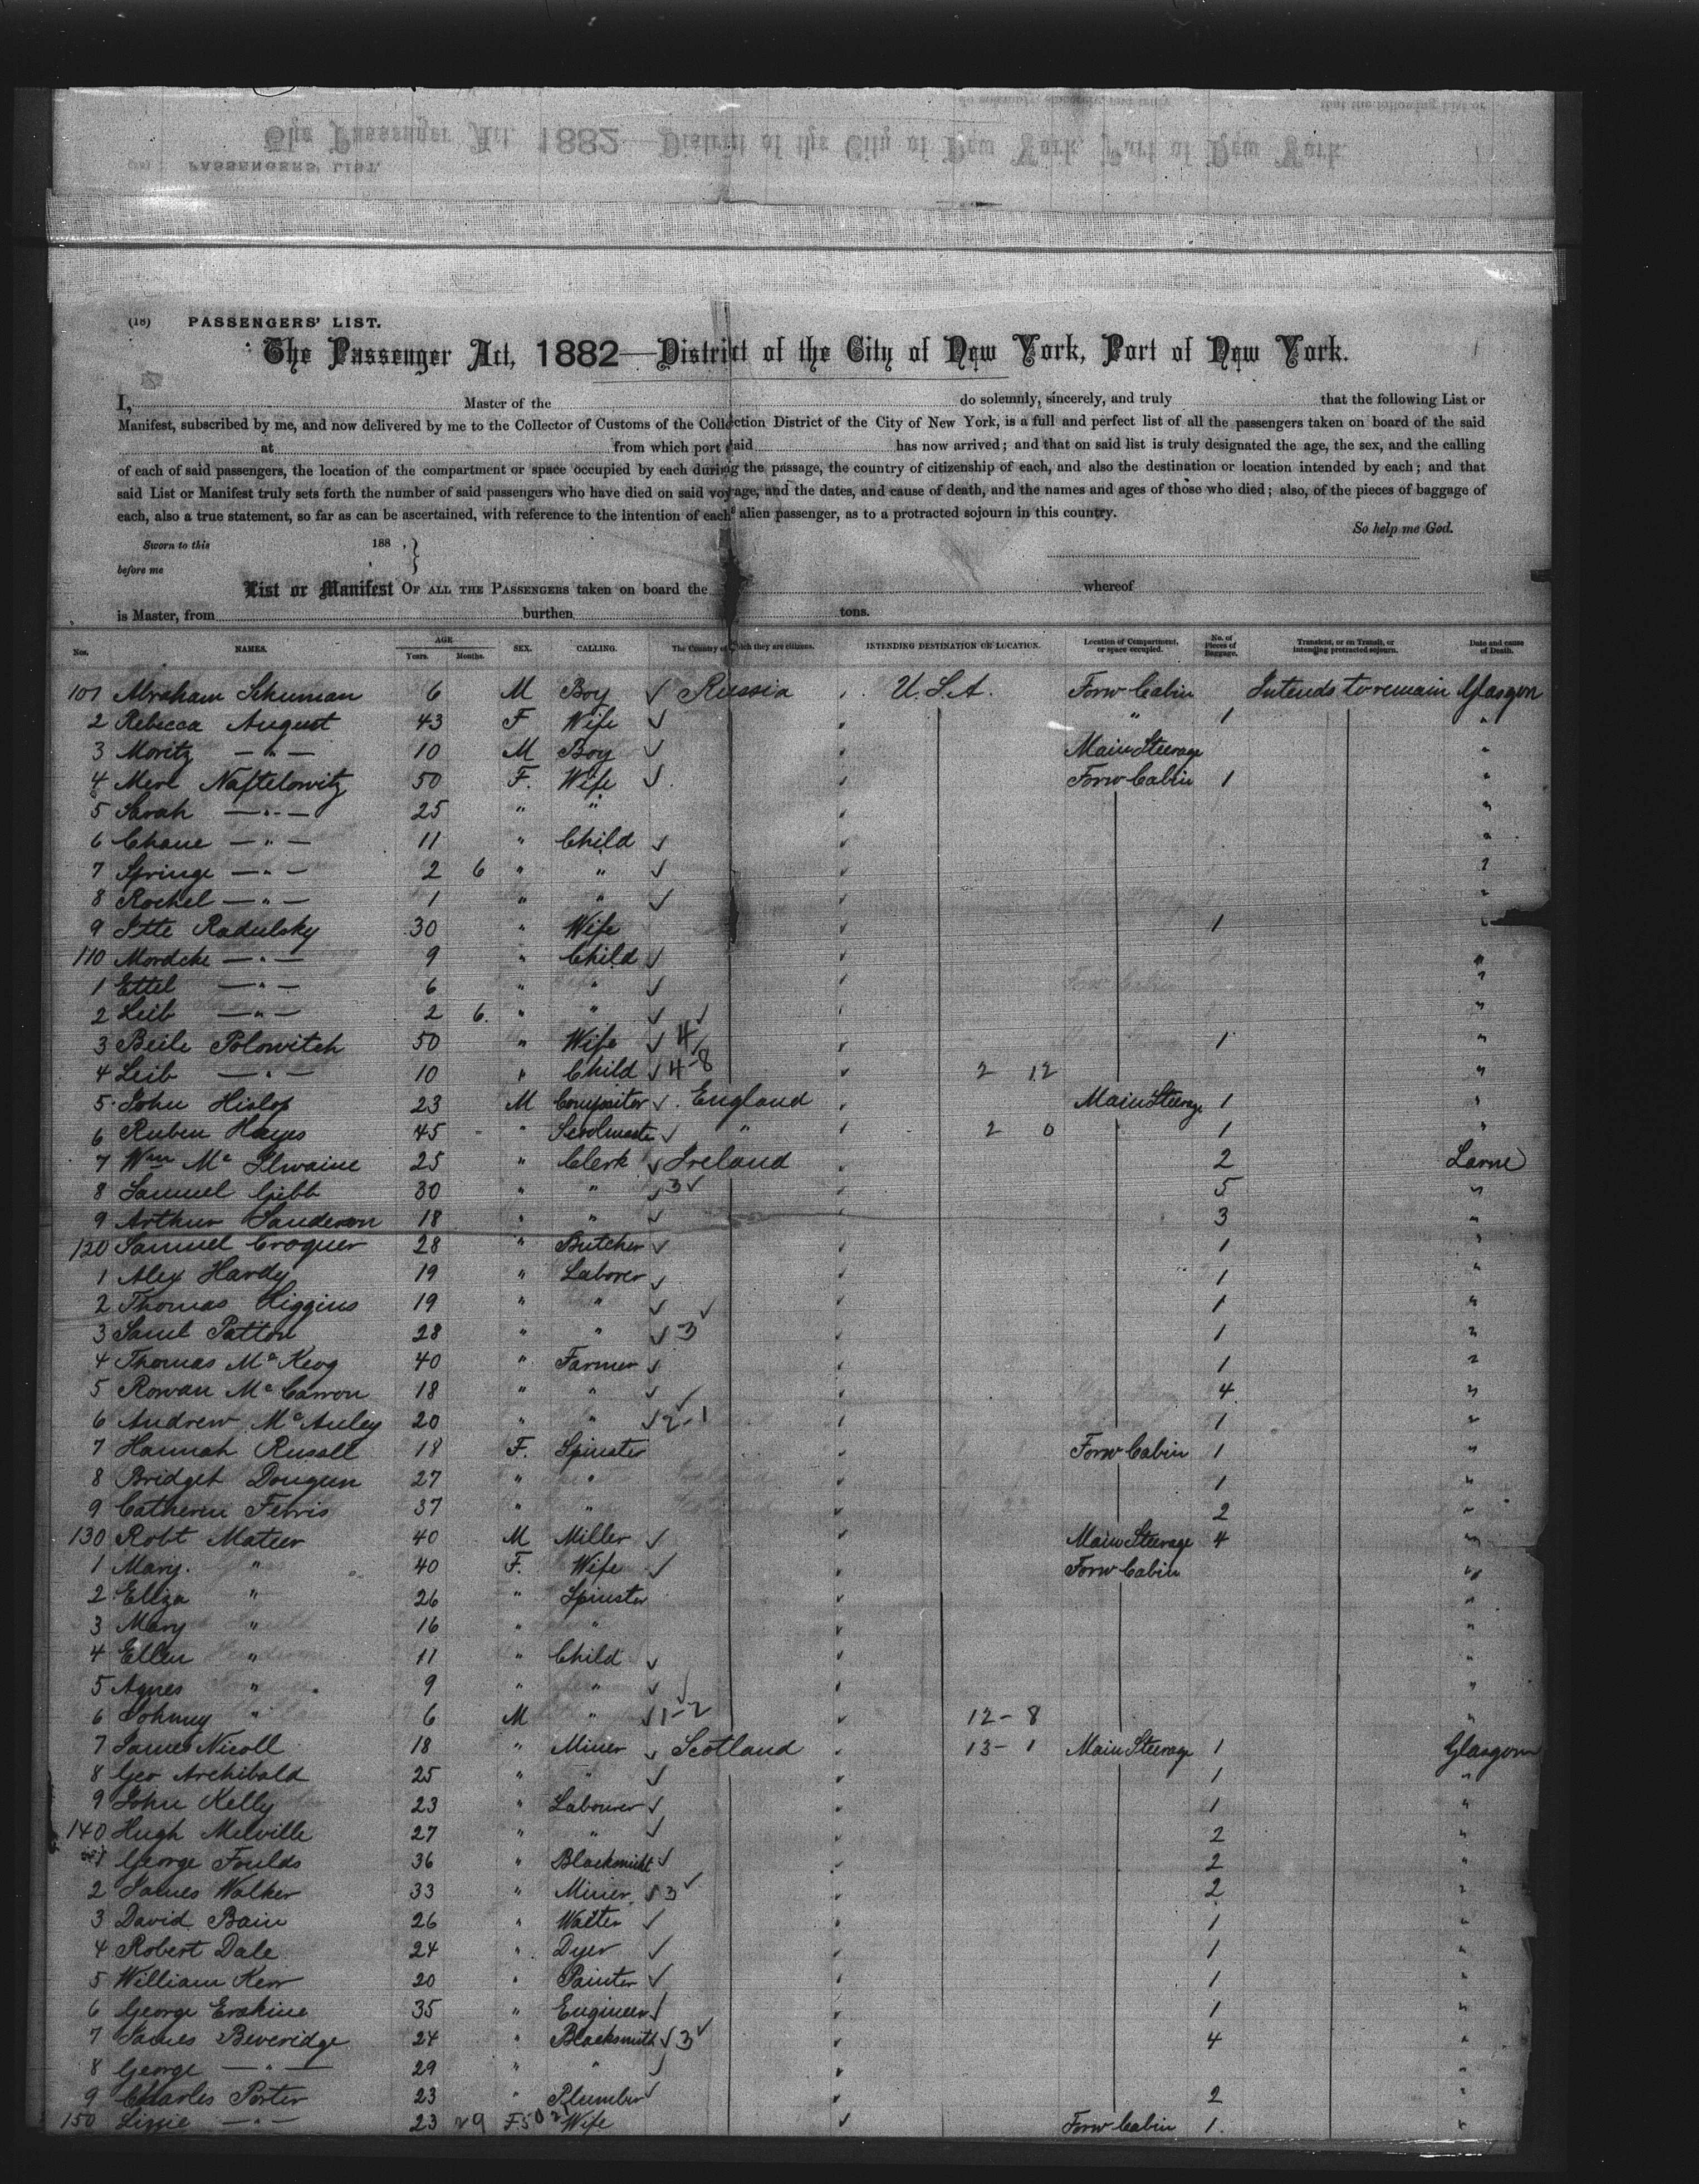 (18) PASSENGERS' LIST.
The Passenger Act, 1882—District of the City of New York, Port of New York.
I, Master of the do solemnly, sincerely, and truly that the following List or
Manifest, subscribed by me, and now delivered by me to the Collector of Customs of the Collection District of the City of New York, is a full and perfect list of all the passengers taken on board of the said
at from which port said has now arrived; and that on said list is truly designated the age, the sex, and the calling
of each of said passengers, the location of the compartment or space occupied by each during the passage, the country of citizenship of each, and also the destination or location intended by each; and that
said List or Manifest truly sets forth the number of said passengers who have died on said voyage, and the dates, and cause of death, and the names and ages of those who died; also, of the pieces of baggage of
each, also a true statement, so far as can be ascertained, with reference to the intention of each alien passenger, as to a protracted sojourn in this country.
So help me God.
Sworn to this 188 ,
before me
List or Manifest OF ALL THE PASSENGERS taken on board the whereof
is Master, from burthen tons.
Nos. NAMES. AGE Years. Months. SEX. CALLING. The Country of which they are citizens. INTENDING DESTINATION OR LOCATION. Location of Compartment, or space occupied. No. of Pieces of Baggage. Transient, or on Transit, or intending protracted sojourn. Date and cause of Death.
101 Abraham Schuman 6 M Boy ✓ Russia U.S.A. Forw Cabin Intends to remain Glasgow
2 Rebecca August 43 F Wife ✓ " 1 "
3 Moritz — " — 10 M Boy ✓ Main Steerage "
4 Mere Naftelowitz 50 F. Wife ✓ Forw Cabin 1 "
5 Sarah — " — 25 " " "
6 Chane — " — 11 " Child ✓ "
7 Springe — " — 2 6 " " ✓ "
8 Rochel — " — 1 " " ✓ "
9 Itte Radulsky 30 " Wife 1 "
110 Mordche — " — 9 " Child ✓ "
1 Ettel — " — 6 " " ✓ "
2 Leib — " — 2 6. " " ✓ "
3 Beile Polowitch 50 " Wife ✓ 4 1 "
4 Leib — " — 10 " Child ✓ 4-8 2 12 "
5 John Hislop 23 M Compositor ✓ England Main Steerage 1 "
6 Ruben Hayes 45 " ✓ " 2 0 1 "
7 Wm Mc Ilwaine 25 " Clerk ✓ Ireland 2 Larne
8 Samuel Gibb 30 " " ✓ 3 ✓ 5 "
9 Arthur Sanderson 18 " " ✓ 3 "
120 Samuel Croquer 28 " Butcher ✓ 1 "
1 Alex Hardy 19 " Laborer ✓ 1 "
2 Thomas Higgins 19 " " ✓ 1 "
3 Saml Patton 28 " " ✓ 3 ✓ 1 "
4 Thomas Mc Keog 40 " Farmer ✓ 1 "
5 Rowan Mc Carron 18 " " ✓ 4 "
6 Andrew Mc Auley 20 " " ✓ 2-1 1 "
7 Hannah Russell 18 F. Spinster Forw Cabin 1 "
8 Bridget Dougun 27 " " 1 "
9 Catheren Ferris 37 " " 2 "
130 Robt Mateer 40 M Miller ✓ Main Steerage 4 "
1 Mary " 40 F. Wife ✓ Forw Cabin "
2 Eliza " 26 " Spinster "
3 Mary " 16 " " "
4 Ellen " 11 " Child ✓ "
5 Agnes " 9 " " ✓ "
6 Johnny " 6 M " ✓ 1-2 12-8 "
7 James Nicoll 18 " Miner ✓ Scotland 13-1 Main Steerage 1 Glasgow
8 Geo Archibald 25 " " ✓ 1 "
9 John Kelly 23 " Labourer ✓ 1 "
140 Hugh Melville 27 " " ✓ 2 "
1 George Foulds 36 " Blacksmith ✓ 2 "
2 James Walker 33 " Miner ✓ 3 ✓ 2 "
3 David Bain 26 " Waiter ✓ 1 "
4 Robert Dale 24 " Dyer ✓ 1 "
5 William Kerr 20 " Painter ✓ 1 "
6 George Erskine 35 " Engineer ✓ 1 "
7 James Beveridge 24 " Blacksmith ✓ 3 ✓ 4 "
8 George — " — 29 " " ✓ "
9 Charles Porter 23 " Plumber ✓ 2 "
150 Lizzie — " — 23 F. Wife Forw Cabin 1. "